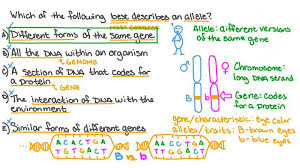 Which of the following best describes an allele?
A) Different forms of the same gene
B) All the DNA within an organism
GENOME
C) A section of DNA that codes for
a protein
GENE
D) The interaction of DNA with the
environment
E) Similar forms of different genes
Allele: different versions
of the same gene
Chromosome:
long DNA strand
Gene: Codes
for a protein
B
b
gene/characteristic: eye color
alleles/traits: B-brown eyes
b-blue eyes
ACACTGA
TGTGACT
B vs. b
ACCTGA
TGGACT